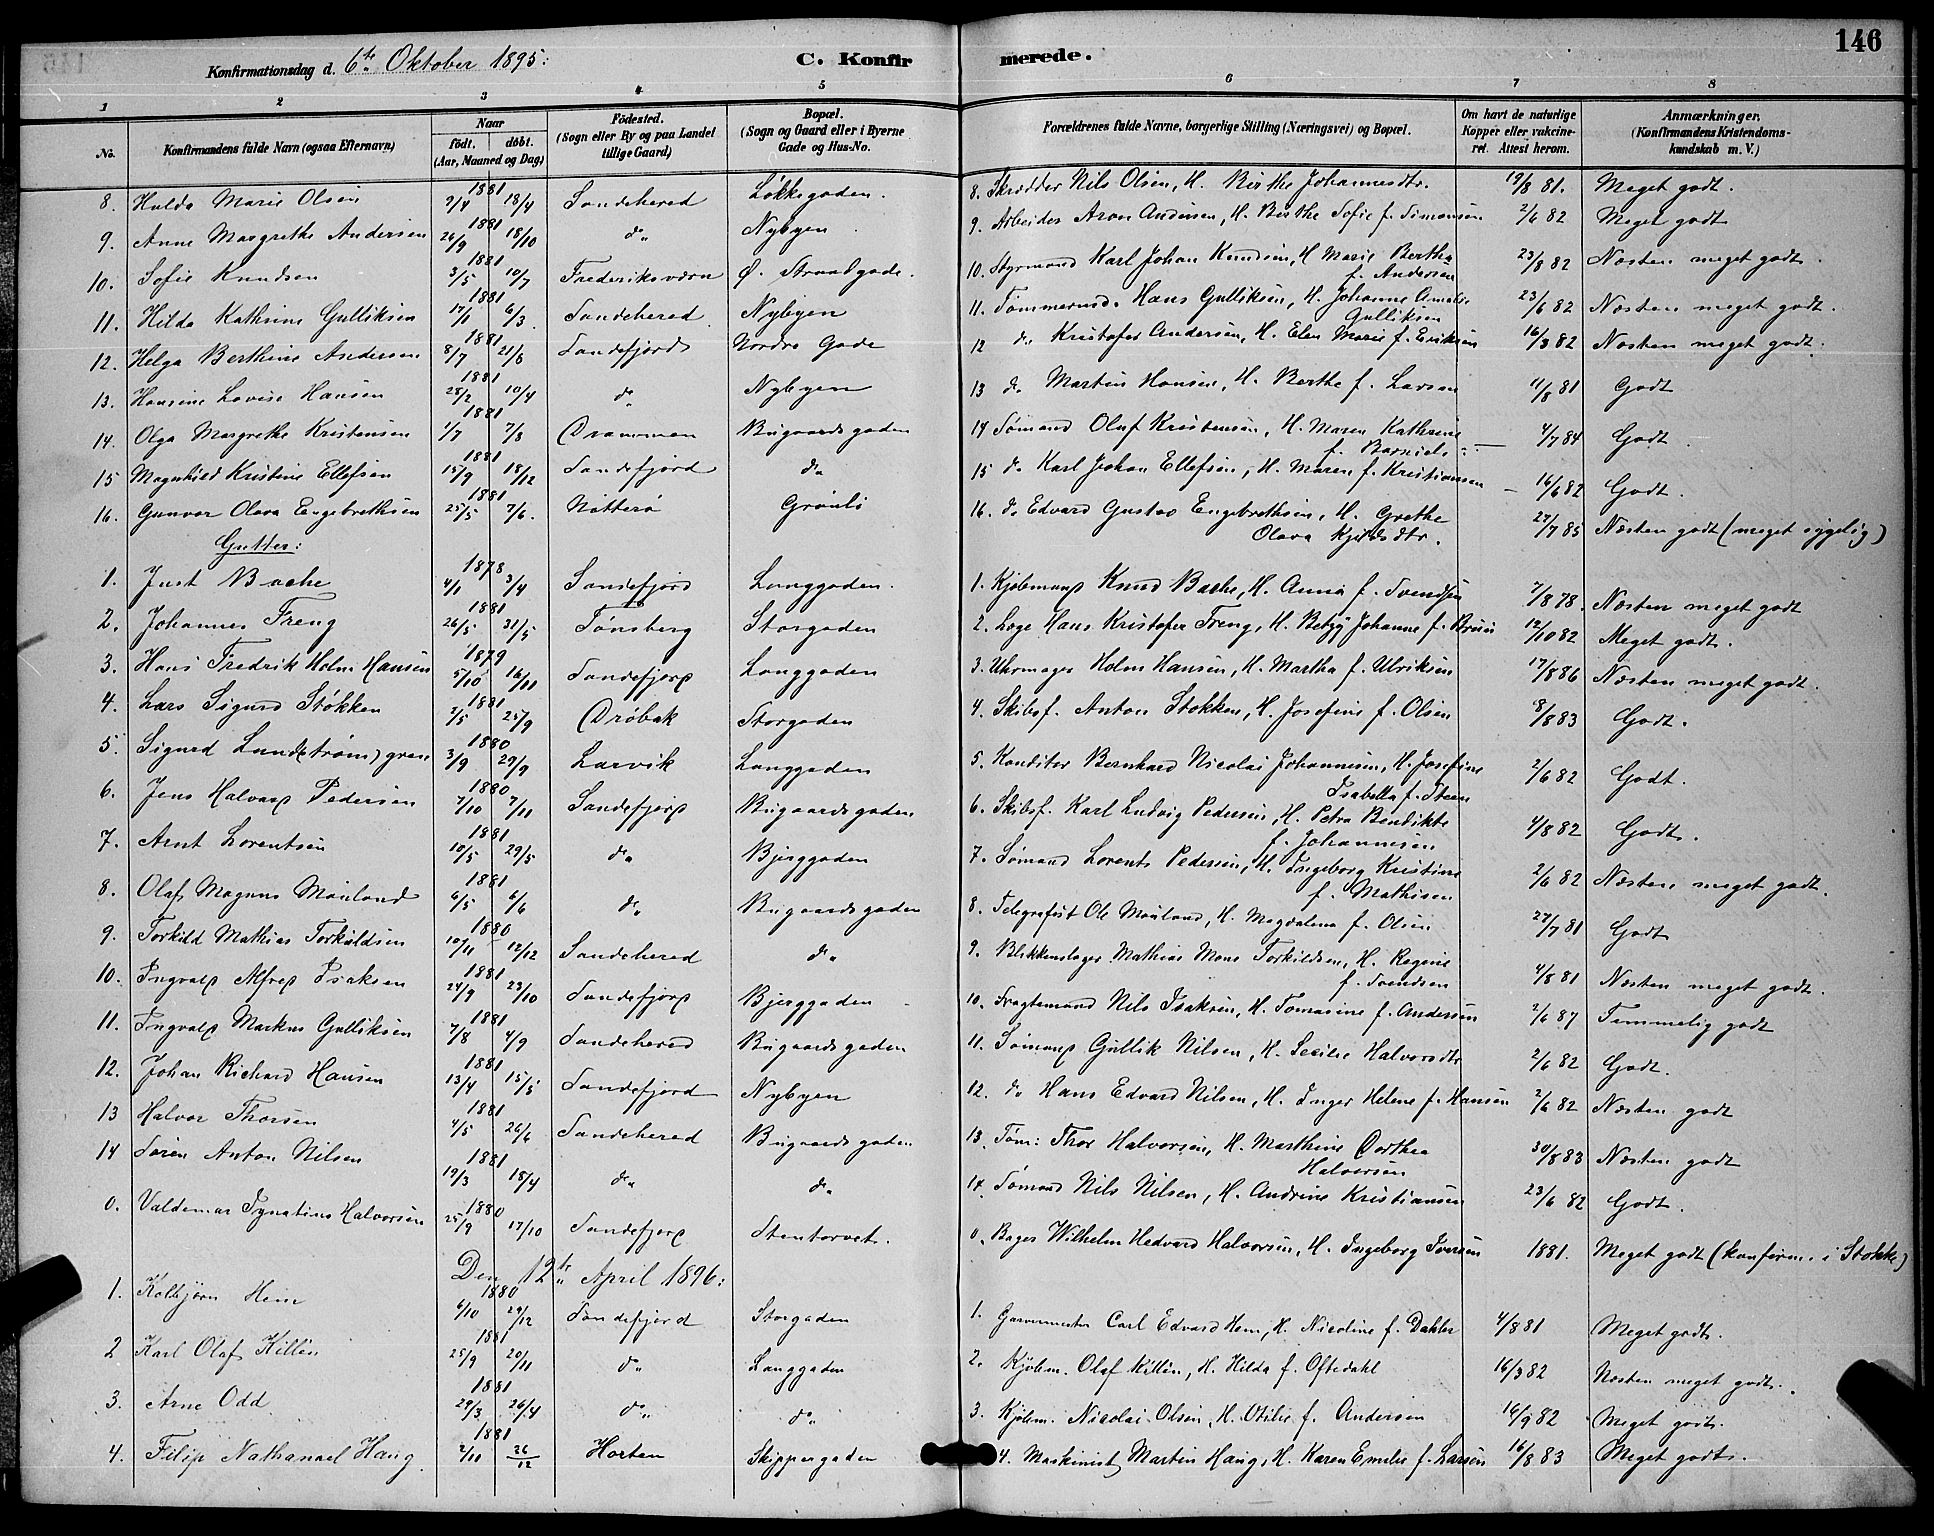 146
Konfirmationsdag d. 6te Oktober 1895:
C. Konfirmerede.
1 2 3 4 5 6 7 8
No. | Konfirmandens fulde Navn (ogsaa Efternavn) | Naar født. døbt. (Aar, Maaned og Dag) | Fødested. (Sogn eller By og paa Landet tillige Gaard) | Bopæl. (Sogn og Gaard eller i Byerne Gade og Hus-No. | Forældrenes fulde Navne, borgerlige Stilling (Næringsvei) og Bopæl. | Om havt de naturlige Kopper eller vakcineret. Attest herom. | Anmærkninger. (Konfirmandens Kristendomskundskab m. V.)
8. Hulda Marie Olsen 1881 9/4 18/4 Sandeherred Løkkegaden. 8. Skrædder Nils Olsen, H. Birthe Johannesdtr. 19/8 81. Meget godt.
9. Anne Margrethe Andersen 1881 26/9 18/10 do Nybyen. 9. Arbeider Aron Andersen, H. Berthe Sofie f. Simonsen 2/6 82 Meget godt
10. Sofie Knudsen 1881 3/5 10/7 Frederiksværn Ø. Strandgade. 10. Styrmand Karl Johan Knudsen, H. Marie Bertha f. Andersen 23/8 82 Næsten meget godt.
11. Hilda Kathrine Gulliksen 1881 17/1 6/3 Sandeherred Nybyen 11. Tømmermd. Hans Gulliksen, H. Johanne Amalie Gulliksen 23/6 82 Næsten meget godt.
12. Helga Berthine Andersen 1881 8/7 21/8 Sandefjord Nordre Gade 12 do Kristofer Andersen, H. Elen Marie f. Eriksen 16/3 82 Næsten meget godt.
13. Hansine Lovise Hansen 1881 28/2 10/4 do Nybyen 13 do Martin Hansen, H. Berthe f. Larsen 11/8 81 Godt
14. Olga Margrethe Kristensen 1881 1/7 7/8 Drammen Bugaardsgaden 14 Sømand Oluf Kristensen, H. Maren Kathrine f. 4/7 84 Godt.
15 Magnhild Kristine Ellefsen 1881 15/9 18/12 Sandefjord do 15 do Karl Johan Ellefsen, H. Maren f. Kristiansen 16/6 82 Godt.
16. Gunvor Olava Engebrethsen 1881 25/5 7/6. Nøtterø Grønli 16. do Edvard Gustav Engebrethsen, H. Grethe Olava Kjeldsdtr. 27/7 85 Næsten godt (meget sygelig)
Gutter:
1. Just Bache 1878 4/1 3/4 Sandefjord Langgaden. 1. Kjøbmand Knud Bache, H. Anna f. Svendsen 7/8 78. Næsten meget godt
2. Johannes Freng 1881 26/5 31/5 Tønsberg Storgaden 2. Læge Hans Kristofer Freng, H. Betzy Johanne f. Bruun 12/10 82 Meget godt.
3. Hans Fredrik Holm Hansen 1879 5/10 16/11 Sandefjord Langgaden 3. Uhrmager Holm Hansen, H. Martha f. Ulriksen 17/8 86 Næsten meget godt.
4. Lars Sigurd Stokken 1881 2/5 25/9 Drøbak Storgaden 4. Skibsf. Anton Stokken, H. Josefine f. Olsen 8/8 83 Godt.
5. Sigurd Lund(strøm)gren 1880 3/9 29/9 Larvik Langgaden 5. Konditor Bernhard Nicolai Johannesen, H. Josefine Isabella f. Steen 2/6 82 Godt.
6. Jens Halvard Pedersen 1880 7/10 7/11 Sandefjord Bugaardsgaden 6. Skibsf. Karl Ludvig Pedersen, H. Petra Bendikte f. Johannesen 4/8 82 Godt.
7. Arnt Lorentsen 1881 10/5 29/5 do Bjerggaden 7. Sømand Lorents Pedersen, H. Ingeborg Kristine f. Mathisen 2/6 82 Næsten meget godt.
8. Olaf Magnus Mauland 1881 6/5 6/6 do Bugaardsgaden 8. Telegrafist Ole Mauland, H. Magdalena f. Olsen 27/7 81 Godt
9. Torkild Mathias Torkildsen 1880 10/11 12/12 Sandeherred do 9. Blikkenslager Mathias Mons Torkildsen, H. Regine f. Svendsen 4/8 81 Næsten meget godt.
10. Ingvald Alfred Isaksen 1881 24/9 23/10 Sandefjord Bjerggaden 10. Fragtemand Nils Isaksen, H. Tomasine f. Andersen 2/6 87 Temmelig godt
11. Ingvald Markus Gulliksen 1881 7/8 4/9 Sandeherred Bugaardsgaden 11. Sømand Gullik Nilsen, H. Secilie Halvorsdtr 2/6 82 Godt.
12. Johan Richard Hansen 1881 13/4 15/5 Sandefjord Nybyen 12. do Hans Edvard Nilsen, H. Inger Helene f. Hansen 2/6 82 Næsten godt
13 Halvor Thorsen 1881 4/5 26/6 Sandeherred Bugaardsgaden 13. Tøm: Thor Halvorsen, H. Marthine Dorthea Halvorsen 30/8 83 Næsten godt
14 Søren Anton Nilsen 1881 19/3 18/4 do do 14. Sømand Nils Nilsen, H. Andrine Kristiansen 23/6 82 Godt.
0. Valdemar Ignatius Halvorsen 1880 25/9 17/10 Sandefjord Stentorvet. 0. Bager Wilhelm Hedvard Halvorsen, H. Ingeborg Iversen 1881. Meget godt (konfirm. i Stokke)
Den 12te April 1896:
1. Kolbjørn Hem 1880 6/10 29/12 Sandefjord Storgaden 1. Garvermester Carl Edvard Hem, H. Nicoline f. Dahler 4/8 81 Meget godt.
2 Karl Olaf Killén 1881 25/9 20/11 do Langgaden 2. Kjøbm. Olaf Killén, H. Hilda f. Oftedahl 16/3 82 Næsten meget godt.
3. Arne Odd 1881 29/3 26/4 do do 3. Kjøbm. Nicolai Olsen, H. Otilie f. Andersen 16/9 82 Meget godt.
4. Filip Nathanael Haug 1881 2/10 26/12 Horten Skippergaden 4. Maskinist Martin Haug, H. Karen Emelie f. Larsen 16/8 83 Meget godt.